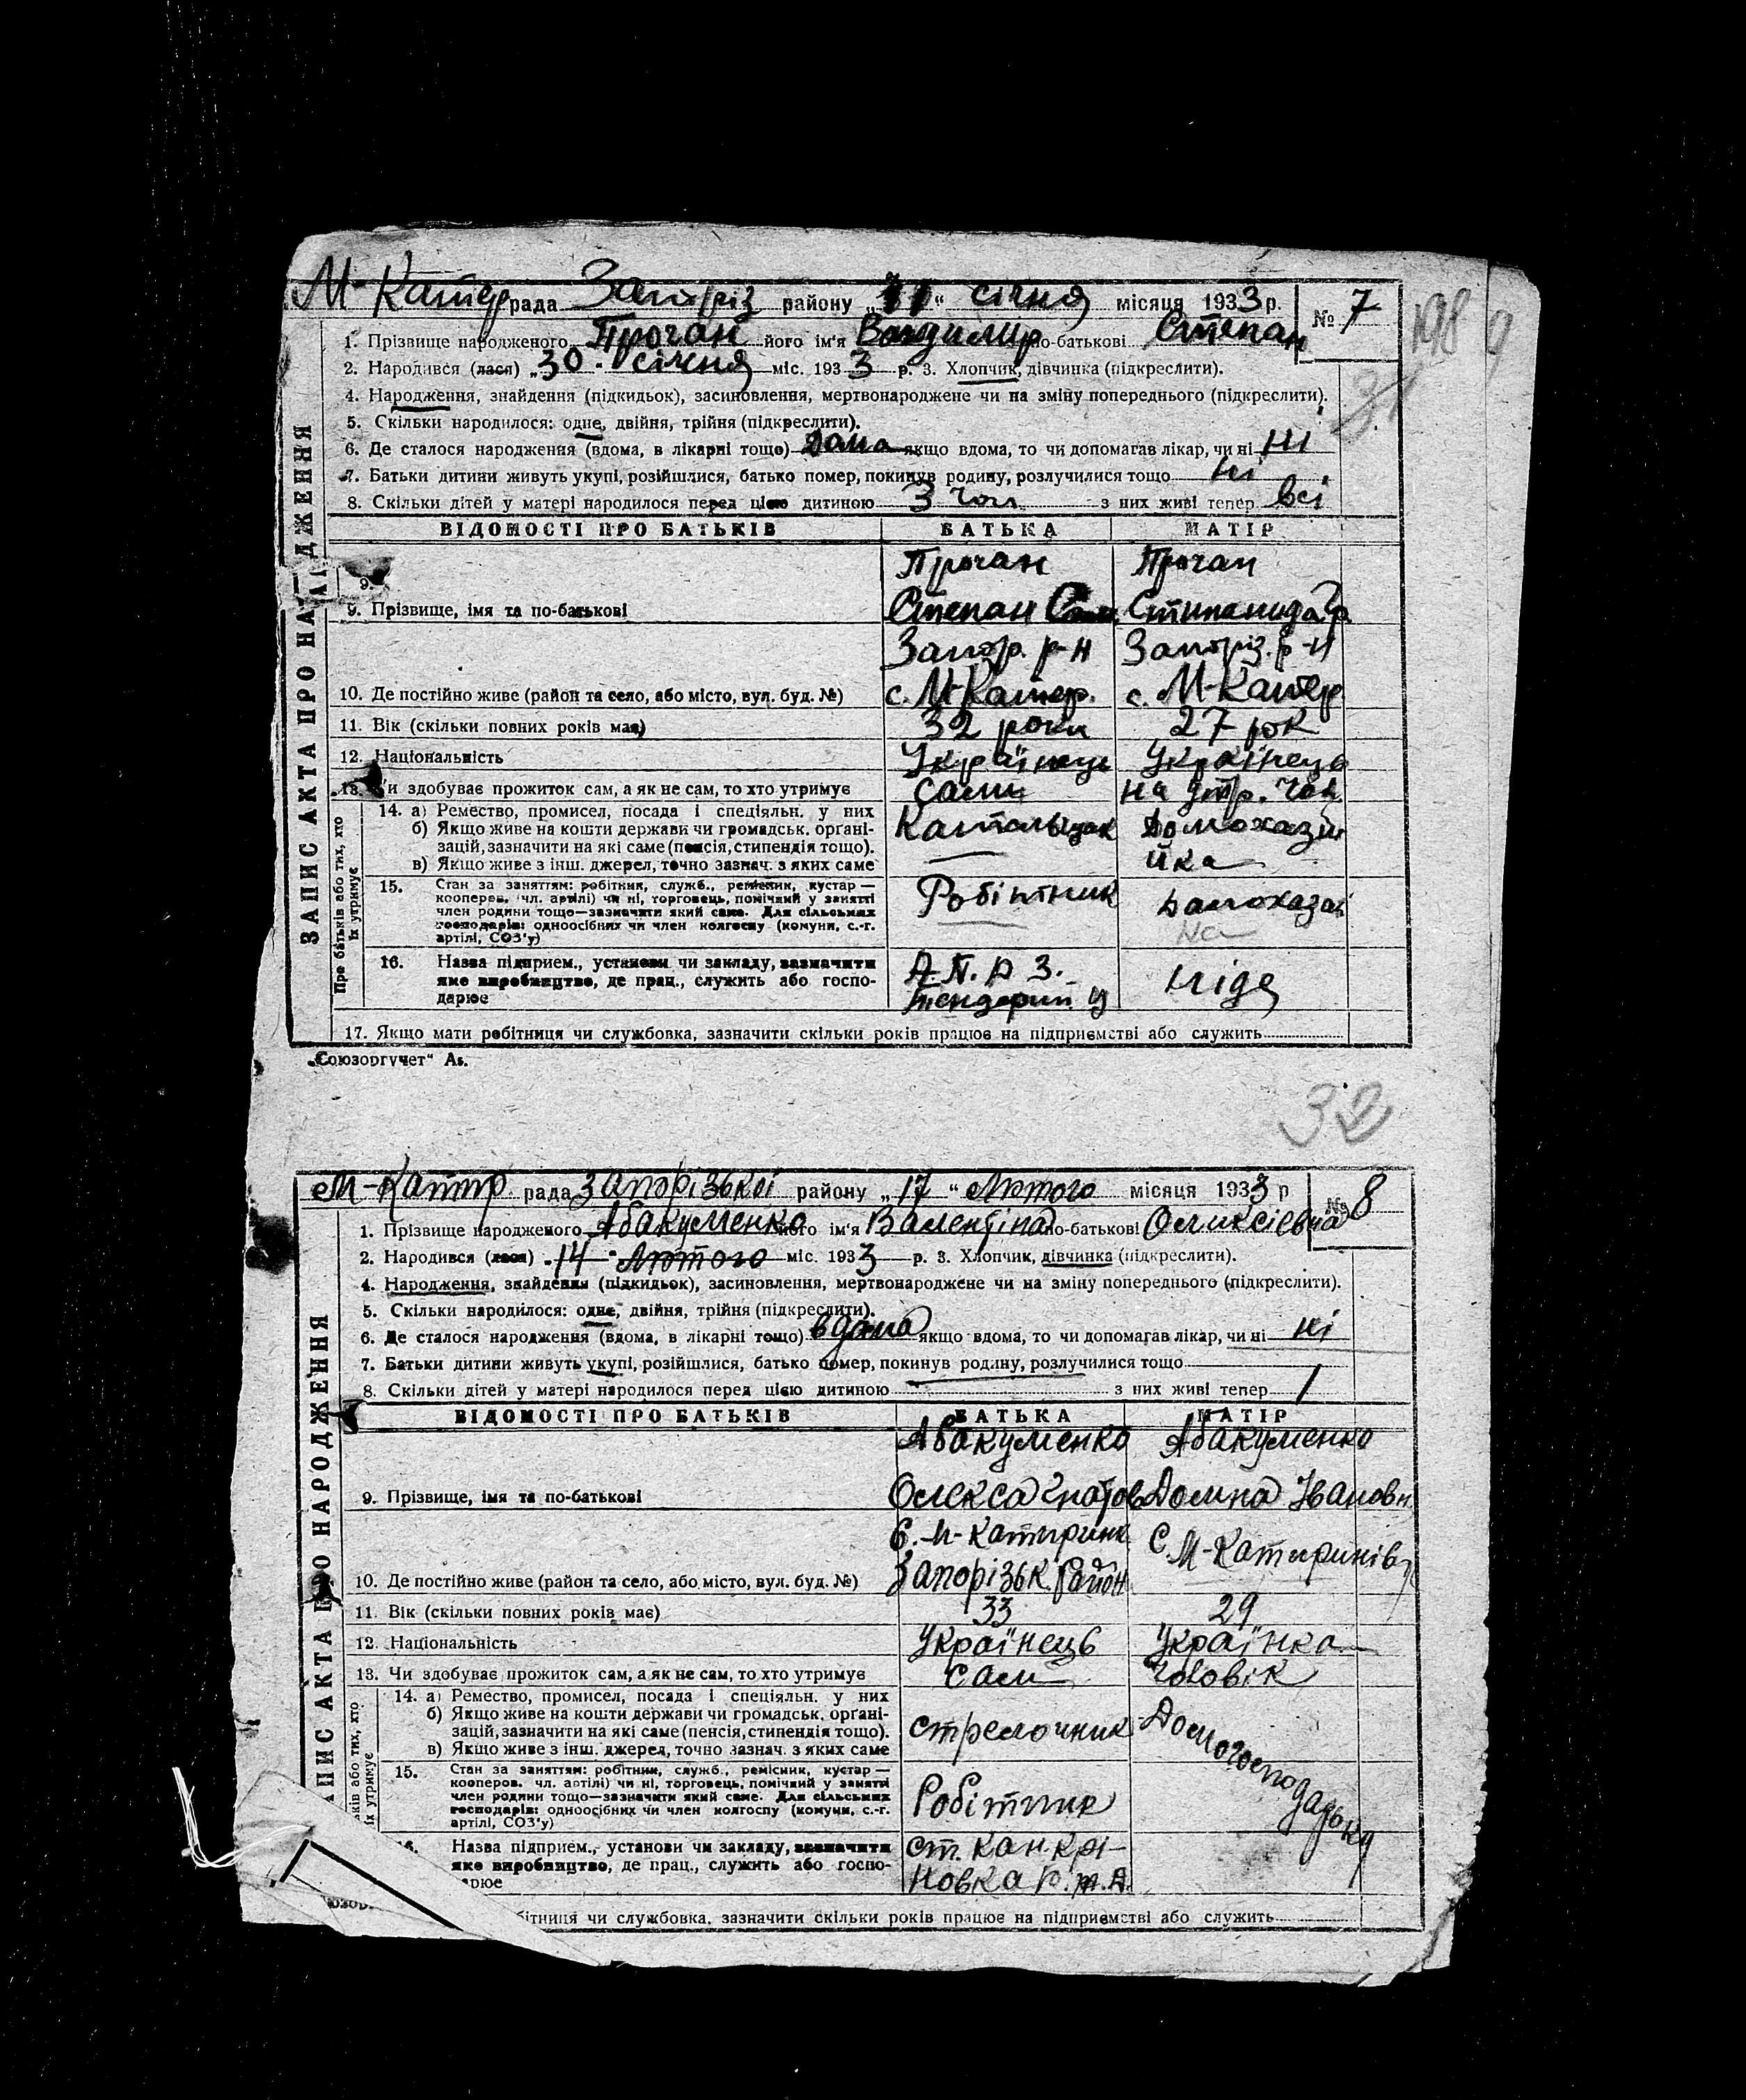 М-Катер рада Запоріз району „31“ січня місяця 1933 р. № 7
198
31
1. Прізвище народженого Прочан його ім'я Владимир по-батькові Степан
2. Народився (лася) „30“ січня міс. 1933 р. 3. Хлопчик, дівчинка (підкреслити).
4. Народження, знайдення (підкидьок), засиновлення, мертвонароджене чи на зміну попереднього (підкреслити).
5. Скільки народилося: одне, двійня, трійня (підкреслити).
6. Де сталося народження (вдома, в лікарні тощо) Дома якщо вдома, то чи допомагав лікар, чи ні ні
7. Батьки дитини живуть укупі, розійшлися, батько помер, покинув родину, розлучилися тощо ні
8. Скільки дітей у матері народилося перед цією дитиною 3 чол з них живі тепер всі
ЗАПИС АКТА ПРО НАРОДЖЕННЯ
ВІДОМОСТІ ПРО БАТЬКІВ БАТЬКА МАТІР
9.
Прочан Прочан
9. Прізвище, імя та по-батькові Степан Стипанида
Запор. р-н Запоріз. р-н
10. Де постійно живе (район та село, або місто, вул. буд. №) с. М-Катер. с. М-Катер
11. Вік (скільки повних років має) 32 роки 27 рок
12. Національність Українець Українець
13. Чи здобуває прожиток сам, а як не сам, то хто утримує Сам на утр. чол.
Про батьків або тих, хто їх утримує
14. а) Ремество, промисел, посада і спеціяльн. у них
б) Якщо живе на кошти держави чи громадськ. органі-
зацій, зазначити на які саме (пенсія, стипендія тощо).
в) Якщо живе з інш. джерел, точно зазнач. з яких саме
Домохазяй
йка
15. Стан за заняттям: робітник, служб., ремісник, кустар —
кооперов. чл. артілі) чи ні, торговець, помічний у занятті
член родини тощо—зазначити який саме. Для сільських
господарів: одноосібних чи член колгоспу (комуни, с.-г.
артілі, СОЗ'у)
Робітник Домохазяй
на
16. Назва підприєм., установи чи закладу, зазначити
яке виробництво, де прац., служить або госпо-
дарює
нігде
17. Якщо мати робітниця чи службовка, зазначити скільки років працює на підприємстві або служить
„Союзоргучет“ Аs.
32
М-Катир. рада Запорізької району „17“ Лютого місяця 1933 р № 8
1. Прізвище народженого Абакуменко його ім'я Валентіна по-батькові Оликсієвна
2. Народився (лася) „14“ Лютого міс. 1933 р. 3. Хлопчик, дівчинка (підкреслити).
4. Народження, знайдення (підкидьок), засиновлення, мертвонароджене чи на зміну попереднього (підкреслити).
5. Скільки народилося: одне, двійня, трійня (підкреслити).
6. Де сталося народження (вдома, в лікарні тощо) вдома якщо вдома, то чи допомагав лікар, чи ні ні
7. Батьки дитини живуть укупі, розійшлися, батько помер, покинув родину, розлучилися тощо
8. Скільки дітей у матері народилося перед цією дитиною з них живі тепер 1
ЗАПИС АКТА ПРО НАРОДЖЕННЯ
ВІДОМОСТІ ПРО БАТЬКІВ БАТЬКА МАТІР
Абакуменко Абакуменко
9. Прізвище, імя та по-батькові Олекса Гнатов Домна Івановн
С. М-Катирини С. М-Катиринівц
10. Де постійно живе (район та село, або місто, вул. буд. №) Запорізьк. Район
11. Вік (скільки повних років має) 33 29
12. Національність Українець Українка
13. Чи здобуває прожиток сам, а як не сам, то хто утримує Сам Чоловік
14. а) Ремество, промисел, посада і спеціяльн. у них
б) Якщо живе на кошти держави чи громадськ. органі-
зацій, зазначити на які саме (пенсія, стипендія тощо).
в) Якщо живе з інш. джерел, точно зазнач. з яких саме
стрелочник Домогосподарька
15. Стан за заняттям: робітник, служб., ремісник, кустар —
кооперов. чл. артілі) чи ні, торговець, помічний у занятті
член родини тощо—зазначити який саме. Для сільських
господарів: одноосібних чи член колгоспу (комуни, с.-г.
артілі, СОЗ'у)
Робітник
Назва підприєм., установи чи закладу, зазначити
яке виробництво, де прац., служить або госпо-
арюе
ст. Канкри-
новка
бітниця чи службовка, зазначити скільки років працює на підприємстві або служить